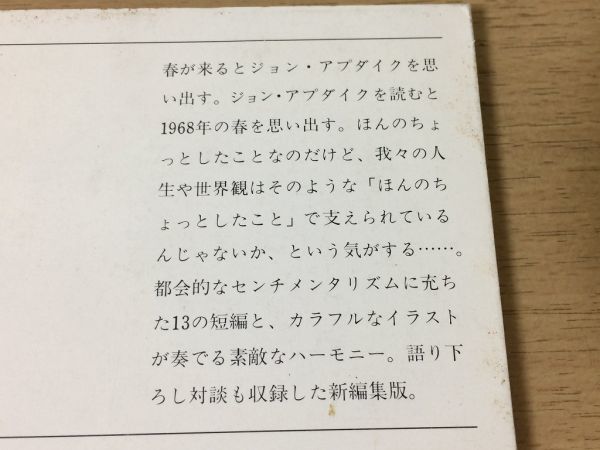 春が来るとジョン・アプダイクを思
い出す。ジョン・アプダイクを読むと
1968年の春を思い出す。ほんのちょ
っとしたことなのだけど、我々の人
生や世界観はそのような「ほんのち
ょっとしたこと」で支えられている
んじゃないか、という気がする……。
都会的なセンチメンタリズムに充ち
た13の短編と、カラフルなイラスト
が奏でる素敵なハーモニー。語り下
ろし対談も収録した新編集版。